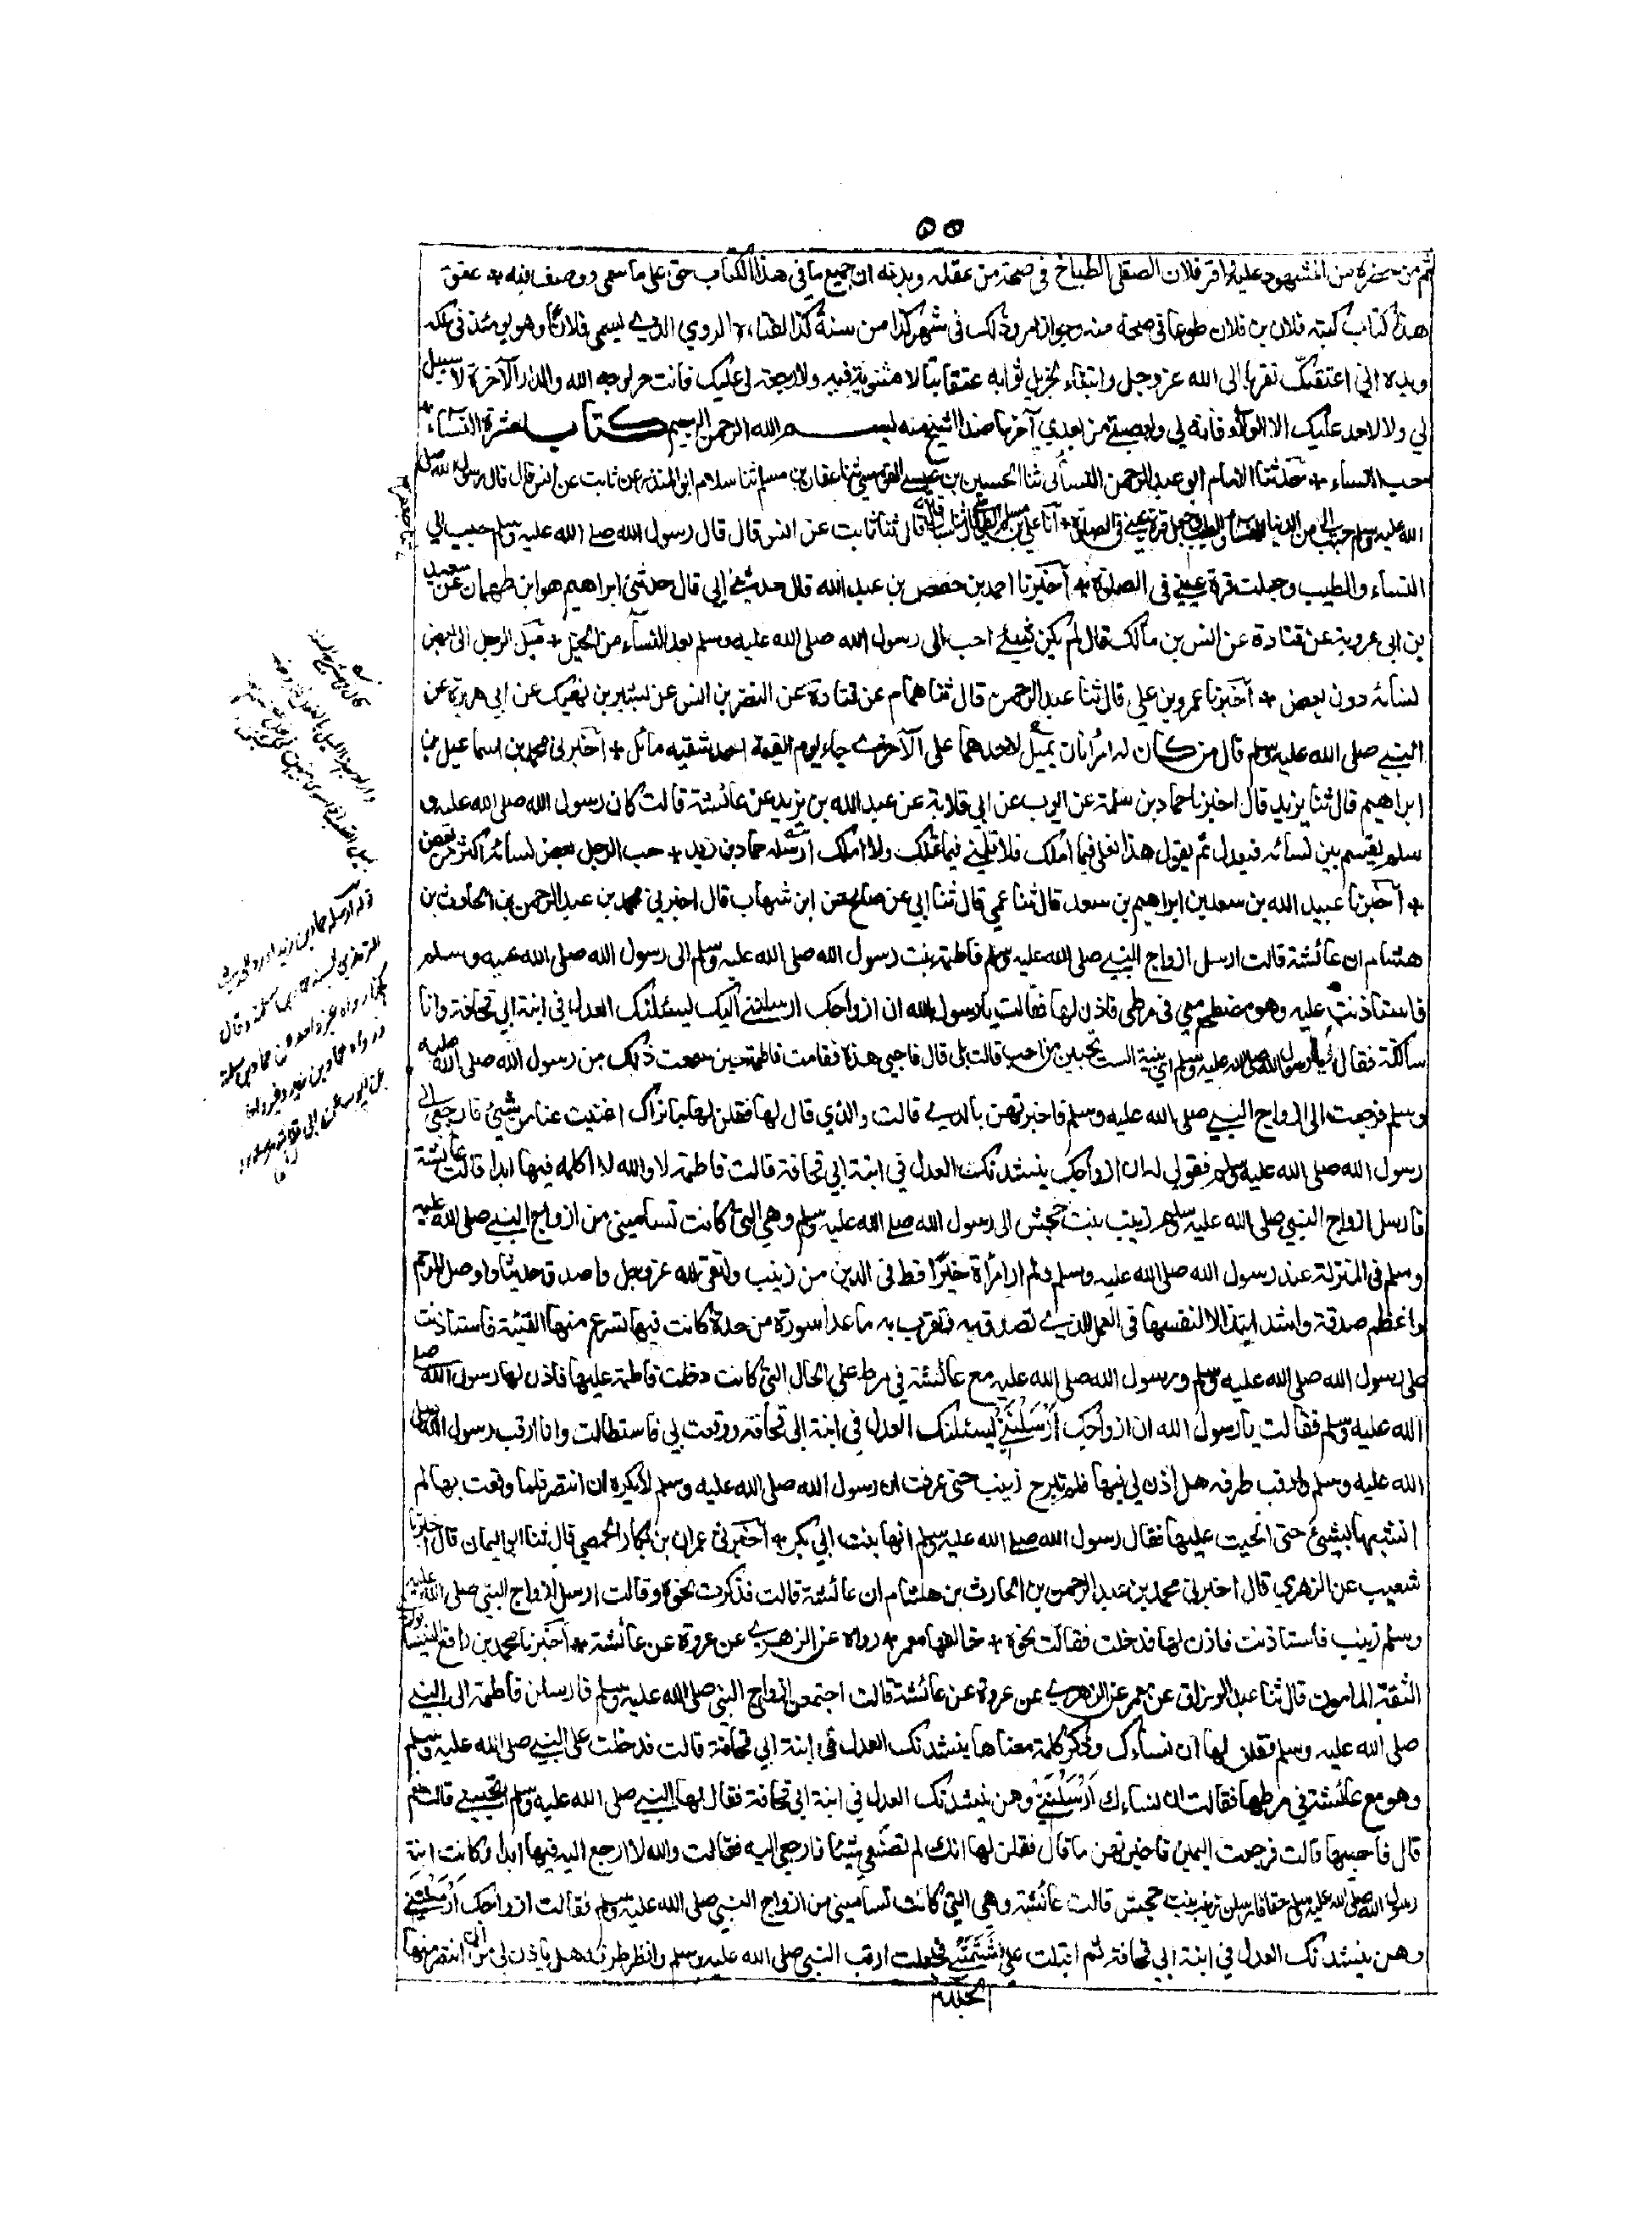 ٥٥
ثم من حضره من المشهود عليه اقر فلان الصقلي الطباخ في صحة من عقله وبدنه ان جميع ما في هذا الكتاب حق على ما سمى ووصف فيه + عتق
هذا كتاب كتبه فلان بن فلان طوعا في صحة منه وجواز امر وذلك في شهر كذا من سنة كذا لفتاه الرومي الذي يسمى فلانا وهو يومئذ في ملكه
ويده اني اعتقتك تقربا الى الله عز وجل وابتغاء لجزيل ثوابه عتقا بتا لا مثنوية فيه ولا رجعة لي عليك فانت حر لوجه الله والدار الآخرة لا سبيل
لي ولا لاحد عليك الا الولاء فانه لي ولعصبتي من بعدي آخر ما هذا الشيخ منه بسم الله الرحمن الرحيم كتاب عشرة النساء
حب النساء + حدثنا الامام ابو عبد الرحمن النسائي ثنا الحسين بن عيسى القومسي ثنا عفان بن مسلم ثنا سلام ابو المنذر عن ثابت عن انس قال قال رسول الله صلى
الله عليه وسلم حبب الي من الدنيا النساء والطيب وجعل قرة عيني في الصلوة + انا علي بن مسلم الطوسي قال ثنا سيار قال ثنا ثابت عن انس قال قال رسول الله صلى الله عليه وسلم حبب الي
النساء والطيب وجعلت قرة عيني في الصلوة + اخبرنا احمد بن حفص بن عبد الله قال حدثني ابي قال حدثني ابراهيم هو ابن طهمان عن سعيد
بن ابي عروبة عن قتادة عن انس بن مالك قال لم يكن شيئ احب الى رسول الله صلى الله عليه وسلم بعد النساء من الخيل + ميل الرجل الى بعض
نسائه دون بعض + اخبرنا عمرو بن علي قال ثنا عبد الرحمن قال ثنا همام عن قتادة عن النضر بن انس عن بشير بن نهيك عن ابي هريرة عن
النبي صلى الله عليه وسلم قال من كان له امرأتان يميل لاحدهما على الآخرى جاء يوم القيمة احد شقيه مائل + اخبرني محمد بن اسماعيل بن
ابراهيم قال ثنا يزيد قال اخبرنا حماد بن سلمة عن ايوب عن ابي قلابة عن عبد الله بن يزيد عن عائشة قالت كان رسول الله صلى الله عليه و
سلم يقسم بين نسائه فيعدل ثم يقول هذا فعلي فيما املك فلا تلمني فيما تملك ولا املك ارسله حماد بن زيد + حب الرجل بعض نسائه اكثر من بعض
+ اخبرنا عبيد الله بن سعد بن ابراهيم بن سعد قال ثنا عمي قال ثنا ابي عن صالح عن ابن شهاب قال اخبرني محمد بن عبد الرحمن بن الحارث بن
هشام ان عائشة قالت ارسل ازواج النبي صلى الله عليه وسلم فاطمة بنت رسول الله صلى الله عليه وسلم الى رسول الله صلى الله عليه وسلم
فاستاذنت عليه وهو مضطجع معي في مرطي فاذن لها فقالت يا رسول الله ان ازواجك ارسلنني اليك ليسئلنك العدل في ابنة ابي قحافة وانا
ساكتة فقال لها رسول الله صلى الله عليه وسلم اي بنية الست تحبين من احب قالت بلى قال فاحبي هذه فقامت فاطمة حين سمعت ذلك من رسول الله صلى الله عليه
وسلم فرجعت الى ازواج النبي صلى الله عليه وسلم فاخبرتهن بالذي قالت والذي قال لها فقلن لها ما نراك اغنيت عنا من شيئ فارجعي الى
رسول الله صلى الله عليه وسلم فقولي له ان ازواجك ينشدنك العدل في ابنة ابي قحافة قالت فاطمة لا والله لا اكلمه فيها ابدا قالت عائشة
فارسل ازواج النبي صلى الله عليه وسلم زينب بنت جحش الى رسول الله صلى الله عليه وسلم وهي التي كانت تساميني من ازواج النبي صلى الله عليه
وسلم في المنزلة عند رسول الله صلى الله عليه وسلم ولم ار امرأة خيرا قط في الدين من زينب واتقى لله عز وجل واصدق حديثا واوصل للرحم
واعظم صدقة واشد ابتذالا لنفسها في العمل الذي تصدق به وتقرب به ما عدا سورة من حدة كانت فيها تسرع منها الفيئة فاستاذنت
على رسول الله صلى الله عليه وسلم ورسول الله صلى الله عليه مع عائشة في مرط على الحال التي كانت دخلت فاطمة عليها فاذن لها رسول الله صلى
الله عليه وسلم فقالت يا رسول الله ان ازواجك ارسلنني ليسئلنك العدل في ابنة ابي قحافة ووقعت بي فاستطالت وانا ارقب رسول الله صلى
الله عليه وسلم وارقب طرفه هل اذن لي فيها فلم تبرح زينب حتى عرفت ان رسول الله صلى الله عليه وسلم لا يكره ان انتصر فلما وقعت بها لم
انشبها بشيئ حتى انحيت عليها فقال رسول الله صلى الله عليه وسلم انها بنت ابي بكر + اخبرني عمران بن بكار الحمصي قال ثنا ابو اليمان قال اخبرنا
شعيب عن الزهري قال اخبرني محمد بن عبد الرحمن بن الحارث بن هشام ان عائشة قالت فذكرت نحوه وقالت ارسل ازواج النبي صلى الله عليه
وسلم زينب فاستاذنت فاذن لها فدخلت فقالت نحوه + خالفهما معمر + رواه عن الزهري عن عروة عن عائشة + اخبرنا محمد بن رافع النيسابوري
الثقة المامون قال ثنا عبد الرزاق عن معمر عن الزهري عن عروة عن عائشة قالت اجتمعن ازواج النبي صلى الله عليه وسلم فارسلن فاطمة الى النبي
صلى الله عليه وسلم فقلن لها ان نساءك وذكر كلمة معناها ينشدنك العدل في ابنة ابي قحافة قالت فدخلت على النبي صلى الله عليه وسلم
وهو مع عائشة في مرطها فقالت ان نساءك ارسلنني وهن ينشدنك العدل في ابنة ابي قحافة فقال لها النبي صلى الله عليه وسلم اتحبيني قالت نعم
قال فاحبيها قالت فرجعت اليهن فاخبرتهن ما قال فقلن لها انك لم تصنعي شيئا فارجعي اليه فقالت والله لا ارجع اليه فيها ابدا وكانت ابنة
رسول الله صلى الله عليه وسلم حقا فارسلن زينب بنت جحش قالت عائشة وهي التي كانت تساميني من ازواج النبي صلى الله عليه وسلم فقالت ازواجك ارسلنني
وهن ينشدنك العدل في ابنة ابي قحافة ثم اقبلت علي تشتمني فجعلت ارقب النبي صلى الله عليه وسلم وانظر طرفه هل ياذن لي من ان انتصر منها
قوله ارسله حماد بن زيد